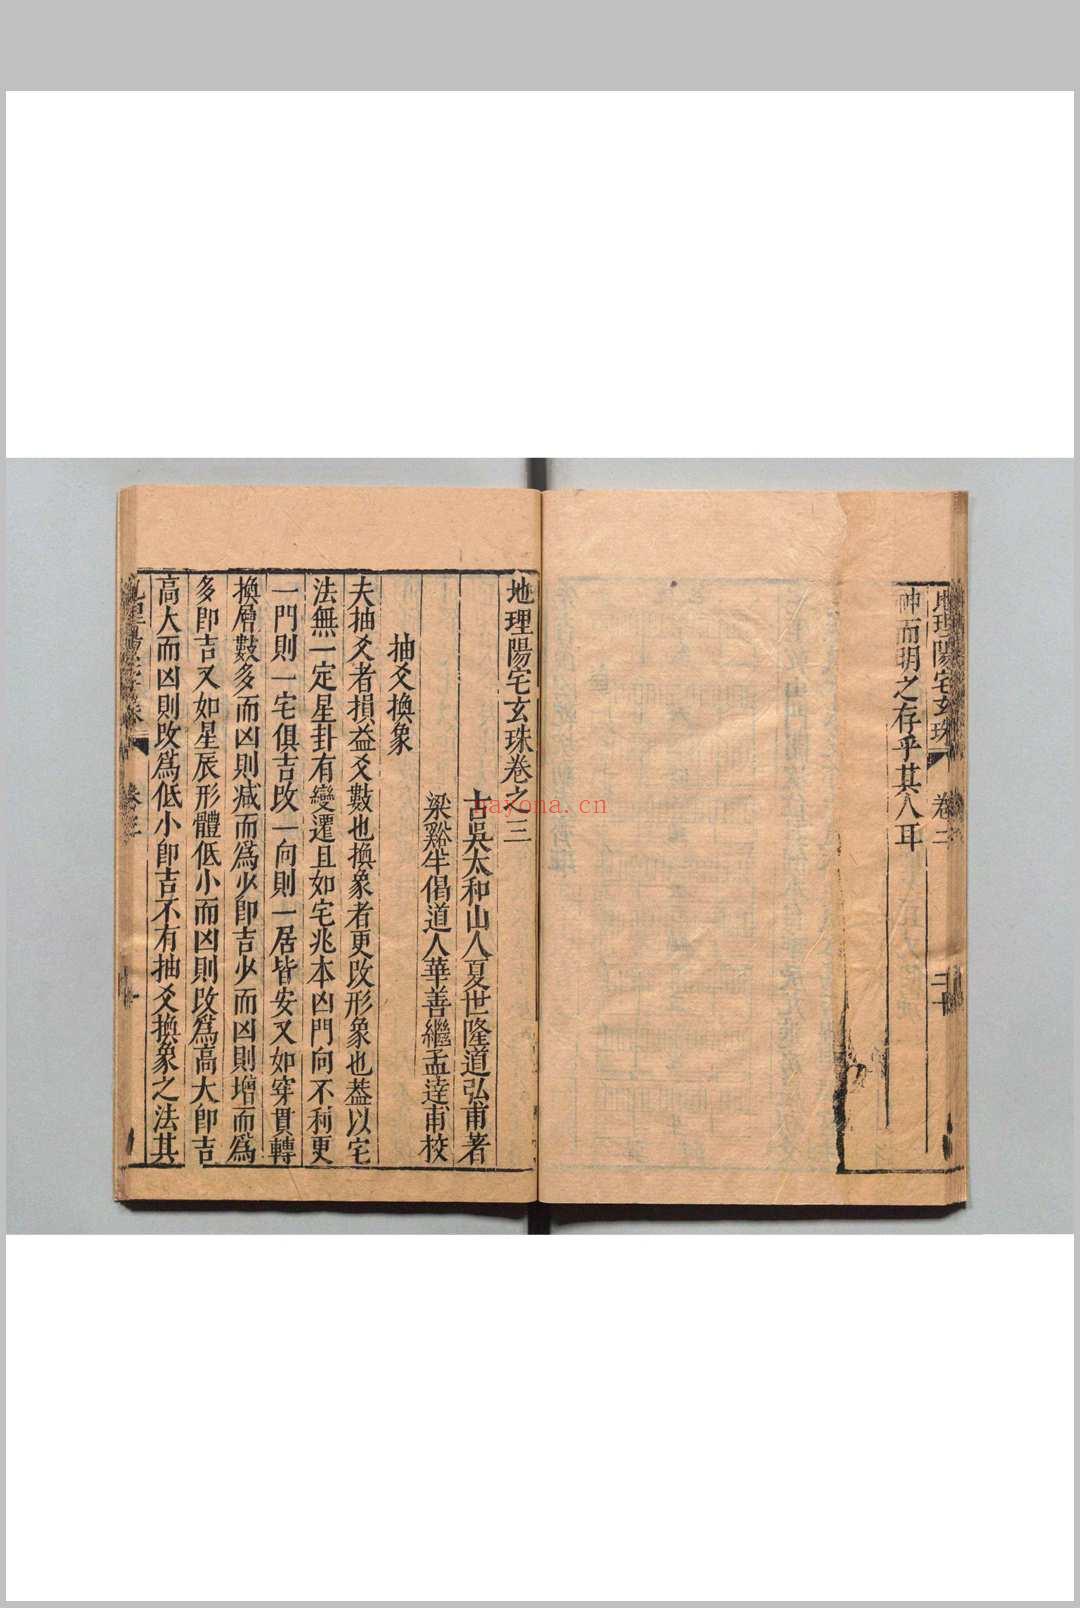 地理陽宅玄珠
卷二
二十
神而明之存乎其人耳
地理陽宅玄珠卷之三
古吳太和山人夏世隆道弘甫著
梁谿半偈道人華善繼孟達甫校
抽爻換象
夫抽爻者損益爻數也換象者更改形象也葢以宅
法無一定星卦有變遷且如宅兆本凶門向不利更
一門則一宅俱吉改一向則一居皆安又如穿貫轉
換層數多而凶則減而爲少卽吉少而凶則增而爲
多卽吉又如星辰形體低小而凶則改爲高大卽吉
高大而凶則改爲低小卽吉不有抽爻換象之法其
卷三
一
nayona.cn